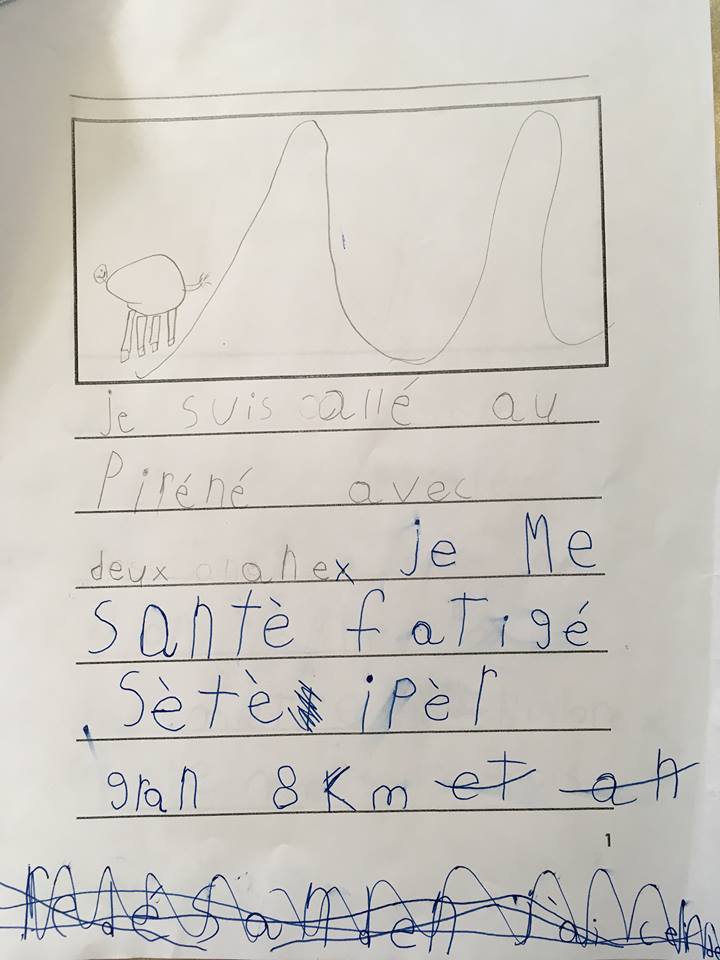 je suis allé au
Piréné avec
deux anex je Me
santè fatigé
. Sètè ipèr
gran 8 Km et an
1